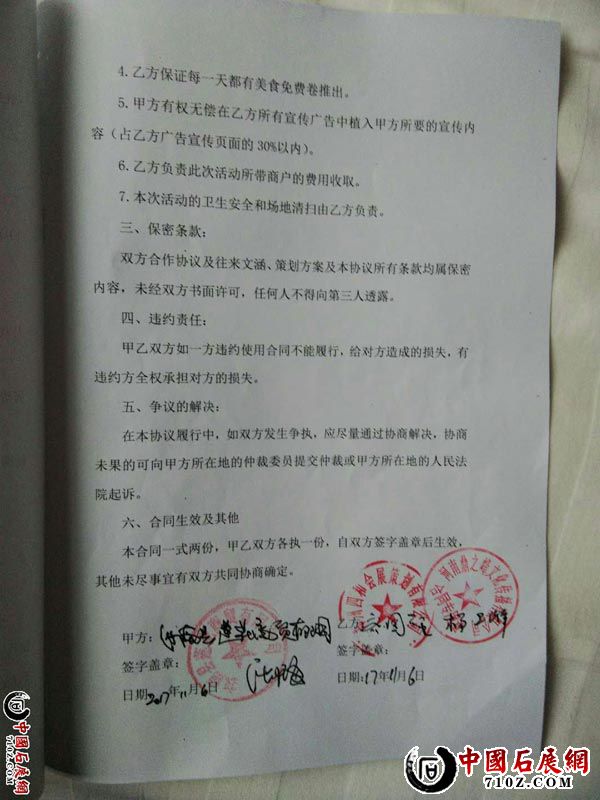 4.乙方保证每一天都有美食免费卷推出。
5.甲方有权无偿在乙方所有宣传广告中植入甲方所要的宣传内
容（占乙方广告宣传页面的30%以内）。
6.乙方负责此次活动所带商户的费用收取。
7.本次活动的卫生安全和场地清扫由乙方负责。
三、保密条款：
双方合作协议及往来文涵、策划方案及本协议所有条款均属保密
内容，未经双方书面许可，任何人不得向第三人透露。
四、违约责任：
甲乙双方如一方违约使用合同不能履行，给对方造成的损失，有
违约方全权承担对方的损失。
五、争议的解决：
在本协议履行中，如双方发生争执，应尽量通过协商解决，协商
未果的可向甲方所在地的仲裁委员提交仲裁或甲方所在地的人民法
院起诉。
六、合同生效及其他
本合同一式两份，甲乙双方各执一份，自双方签字盖章后生效，
其他未尽事宜有双方共同协商确定。
甲方：
乙方
签字盖章：
签字盖章：
日期：2017年11月6日
日期：17年11月6日
会展策划有限公司
中國石展網
710Z.COM
中國石展網
710Z.COM